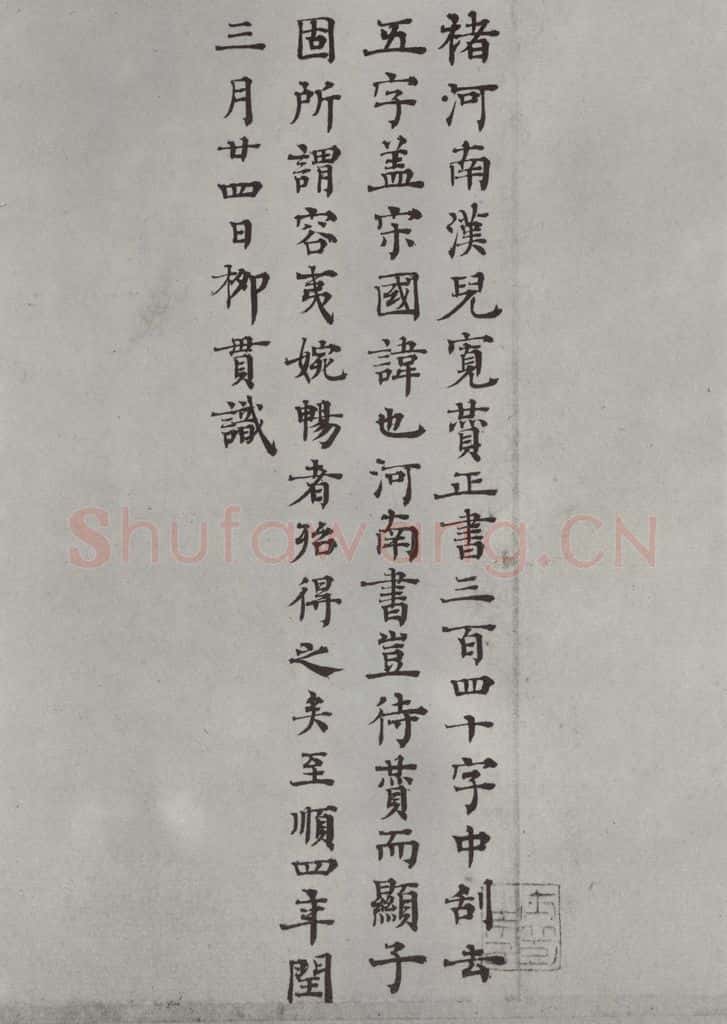 褚河南漢兒寬贊正書三百四十字中刮去
五字盖宋國諱也河南書豈待贊而顯子
固所謂容夷婉暢者殆得之矣至順四年閏
三月廿四日柳貫識
Shufawang.CN